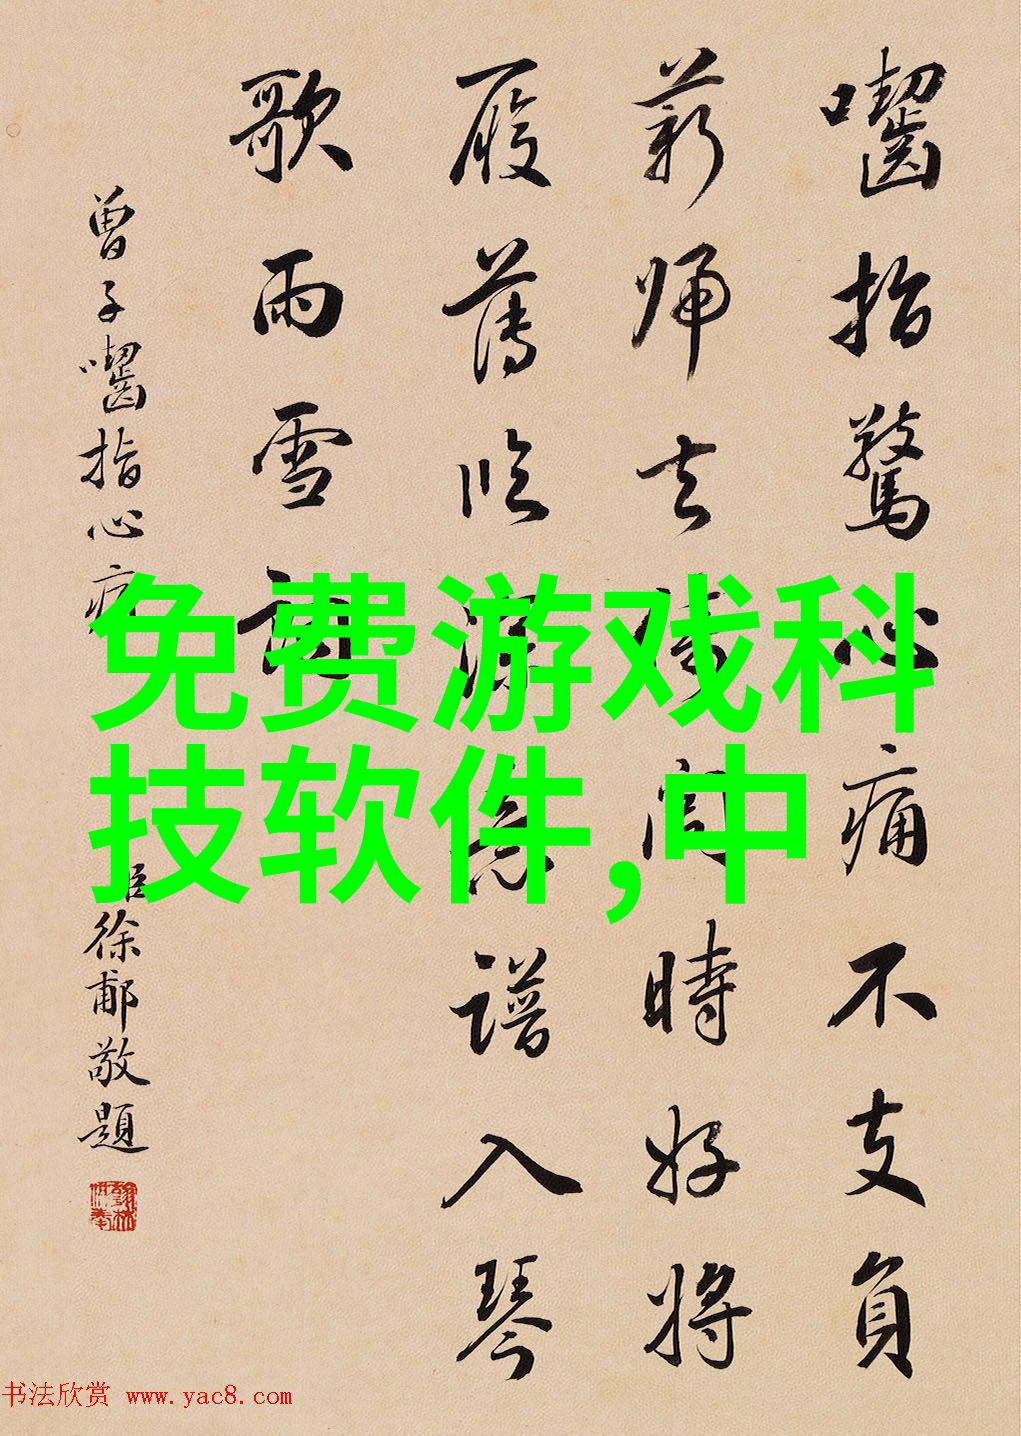 囓指驚心痛不支負
薪歸去時好將
履薄臨深意譜入琴
歌雨雪詞
曾子囓指心痛
臣徐郙敬題
免费游戏科
技软件,中
书法欣赏 www.yac8.com